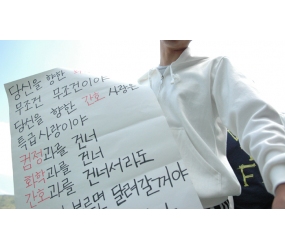 당신을 향한
무조건 무조건이야
당신을 향한 간호 사랑은
특급 사랑이야
컴정과를 건너
화학과를 건너
간호과를 건너서라도
부르면 달려갈꺼야
F